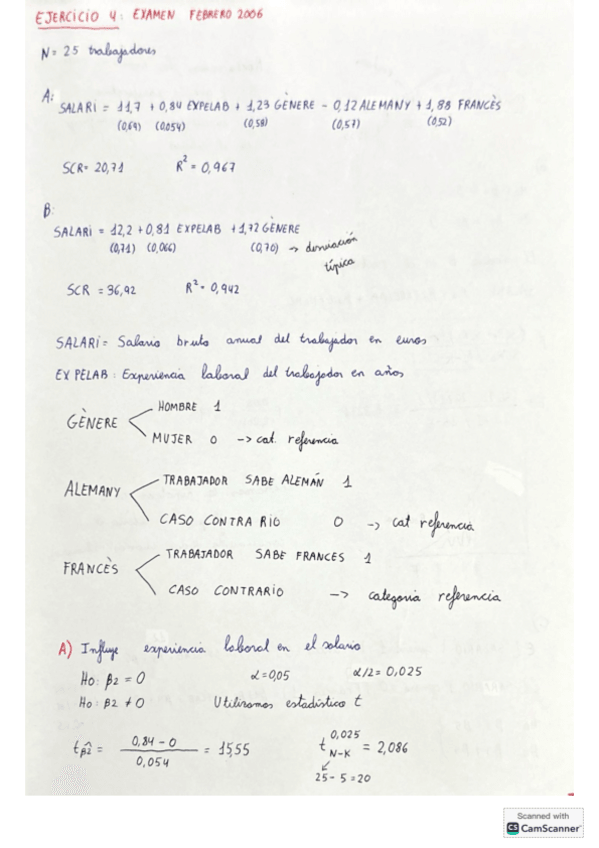 EJERCICIO 4: EXAMEN FEBRERO 2006
N= 25 trabajadores
A:
SALARI = 11,7 + 0,84 EXPELAB + 1,23 GÈNERE - 0,12 ALEMANY + 1,88 FRANCÈS
(0,69) (0,054) (0,58) (0,57) (0,52)
SCR= 20,71 R² = 0,967
B:
SALARI = 12,2 + 0,81 EXPELAB + 1,72 GÈNERE
(0,71) (0,066) (0,70) → desviación
típica
SCR = 36,92 R² = 0,942
SALARI = Salario bruto anual del trabajador en euros
EXPELAB: Experiencia laboral del trabajador en años
HOMBRE 1
GÈNERE
MUJER 0 → cat. referencia
TRABAJADOR SABE ALEMÁN 1
ALEMANY
CASO CONTRARIO 0 → cat referencia
TRABAJADOR SABE FRANCES 1
FRANCÈS
CASO CONTRARIO → categoria referencia
A) Influye experiencia laboral en el salario
Ho: β2 = 0 α=0,05 α/2 = 0,025
Ho: β2 ≠ 0 Utilizamos estadístico t
t β̂2 = 0,84 - 0 / 0,054 = 15,55 t 0,025 N-K = 2,086
25 - 5 = 20
Scanned with
CS CamScanner